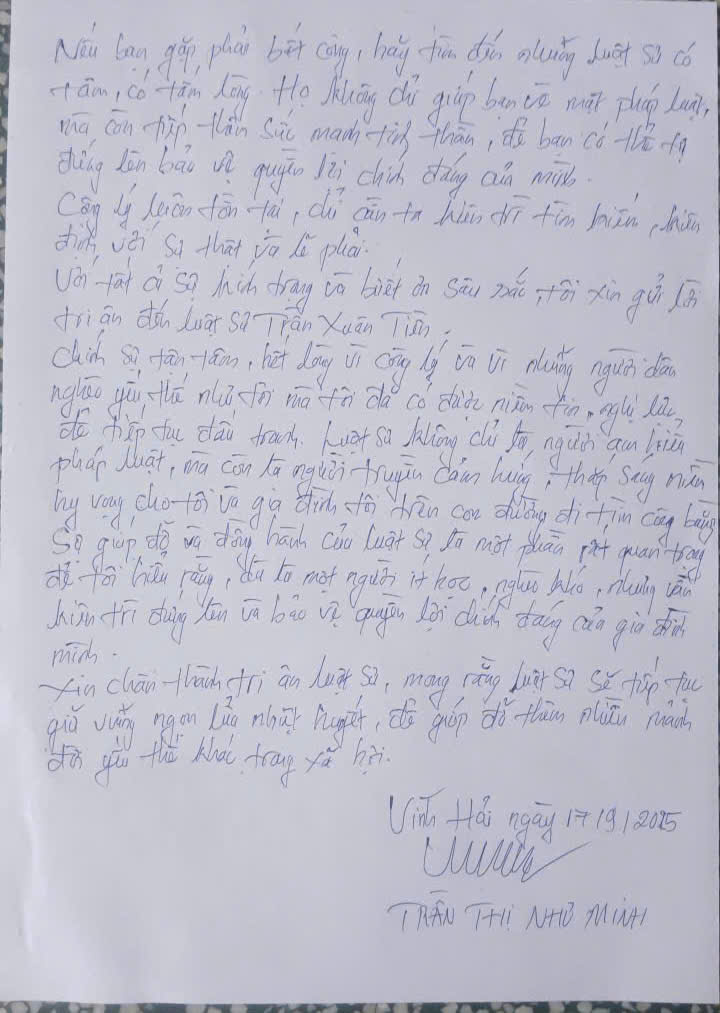 Nếu bạn gặp phải bất công, hãy tìm đến những luật sư có
tâm, có tấm lòng. Họ không chỉ giúp bạn về mặt pháp luật,
mà còn tiếp thêm sức mạnh tinh thần, để bạn có thể tự
đứng lên bảo vệ quyền lợi chính đáng của mình.
Công lý luôn tồn tại, chỉ cần ta kiên trì tìm kiếm, kiên
định với sự thật và lẽ phải.
Với tất cả sự kính trọng và biết ơn sâu sắc, tôi xin gửi lời
tri ân đến luật sư Trần Xuân Tiền.
Chính sự tận tâm, hết lòng vì công lý và vì những người dân
nghèo yếu thế như tôi mà tôi đã có được niềm tin, nghị lực
để tiếp tục đấu tranh. Luật sư không chỉ là người am hiểu
pháp luật, mà còn là người truyền cảm hứng, thắp sáng niềm
hy vọng cho tôi và gia đình tôi trên con đường đi tìm công bằng
Sự giúp đỡ và đồng hành của luật sư là một phần rất quan trọng
để tôi hiểu rằng, dù là một người ít học, nghèo khó, nhưng vẫn
kiên trì đứng lên và bảo vệ quyền lợi chính đáng của gia đình
mình.
Xin chân thành tri ân luật sư, mong rằng luật sư sẽ tiếp tục
giữ vững ngọn lửa nhiệt huyết, để giúp đỡ thêm nhiều mảnh
đời yếu thế khác trong xã hội.
Vĩnh Hải ngày 17/9/2025
TRẦN THỊ NHƯ MINH